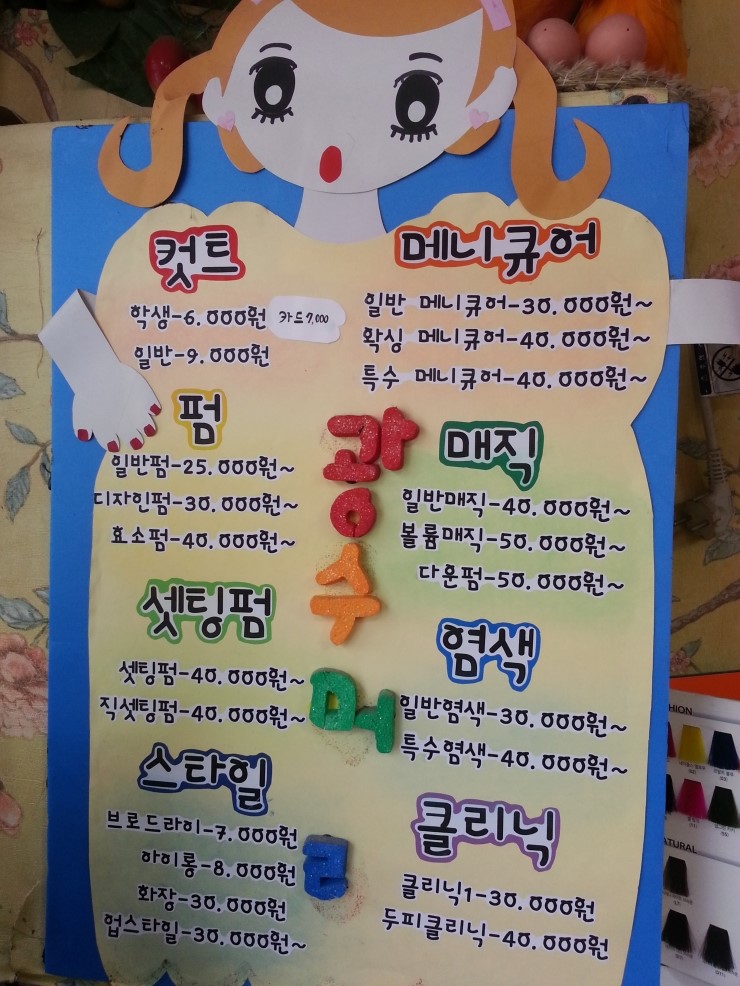 컷트
학생-6.000원
카드7,000
일반-9.000원
펌
일반펌-25.000원~
디자인펌-30.000원~
효소펌-40.000원~
셋팅펌
셋팅펌-40.000원~
직셋팅펌-40.000원~
스타일
브로드라이-7.000원
아이롱-8.000원
화장-30.000원
업스타일-30.000원~
광
응
수
머
리
메니큐어
일반 메니큐어-30.000원~
왁싱 메니큐어-40.000원~
특수 메니큐어-40.000원~
매직
일반매직-40.000원~
볼륨매직-50.000원~
다운펌-50.000원~
염색
일반염색-30.000원~
특수염색-40.000원~
클리닉
클리닉1-30.000원
두피클리닉-40.000원
HION
TURAL